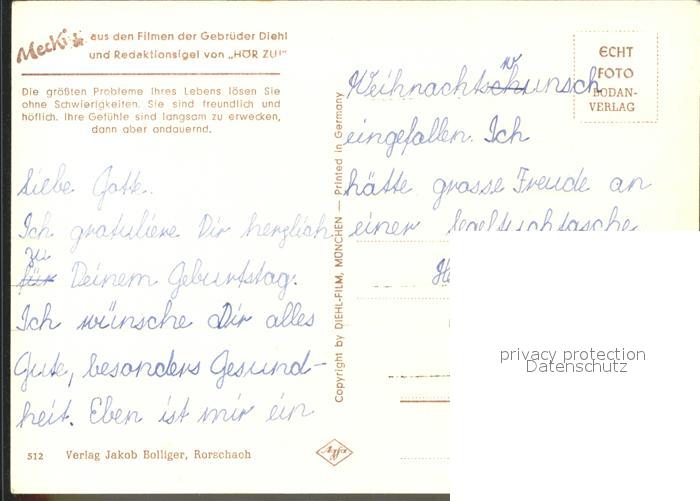 Mecki aus den Filmen der Gebrüder Diehl
und Redaktionsigel von „HÖR ZU!"
Die größten Probleme Ihres Lebens lösen Sie
ohne Schwierigkeiten. Sie sind freundlich und
höflich. Ihre Gefühle sind langsam zu erwecken,
dann aber andauernd.
Liebe Gotte.
Ich gratuliere Dir herzlich
zu
für Deinem Geburtstag.
Ich wünsche Dir alles
Gute, besonders Gesund-
heit. Eben ist mir ein
512 Verlag Jakob Bolliger, Rorschach
Copyright by DIEHL-FILM, MÜNCHEN — Printed in Germany
Agfa
ECHT
FOTO
BODAN-
VERLAG
w
Weihnachtschunsch
eingefallen. Ich
hätte grosse Freude an
einer Segeltuchtasche
privacy protection
Datenschutz